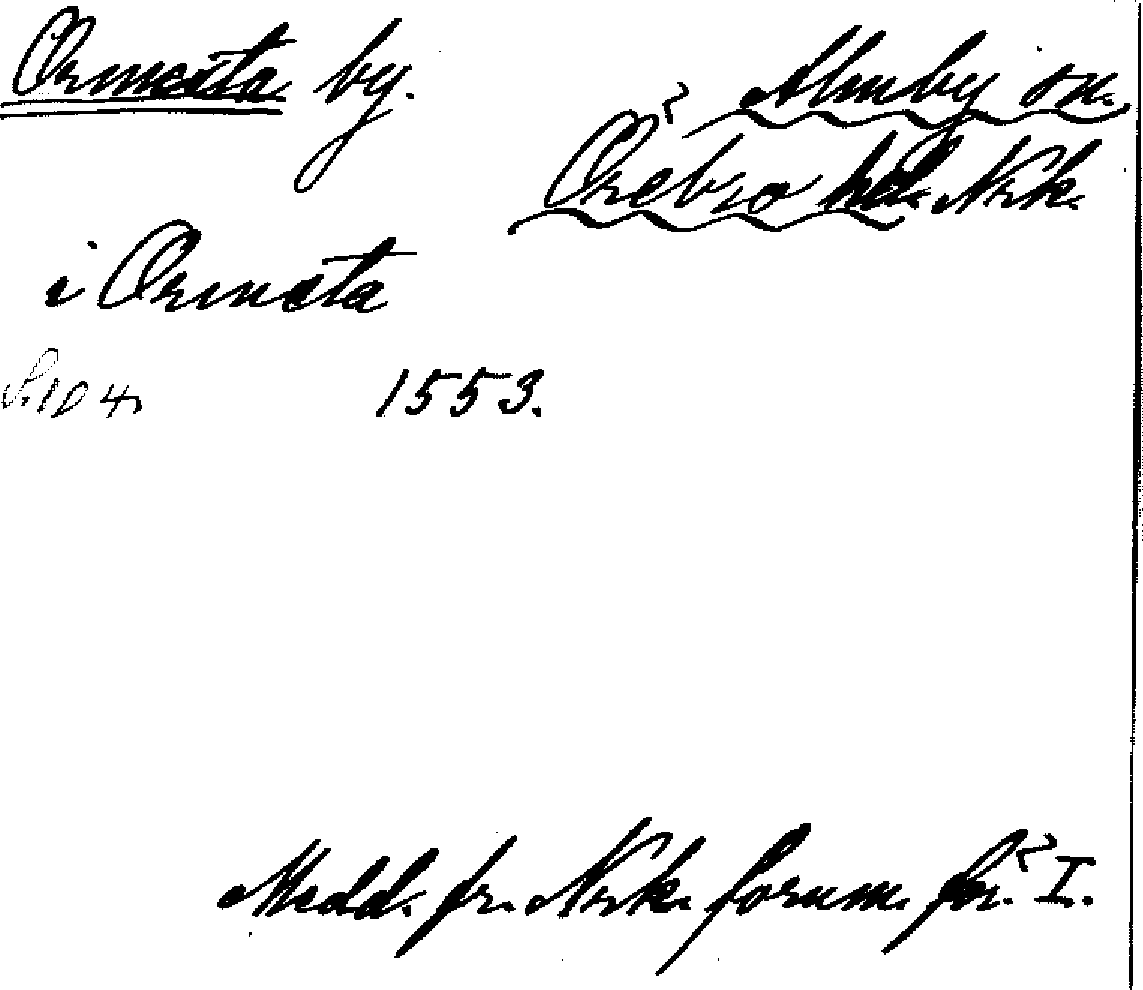 Ormesta by.
Almby sn.
Örebro hd. Nrk.
i Ormesta
S. 104.
1553.
Medd. fr. Nrk. fornm. för. I.